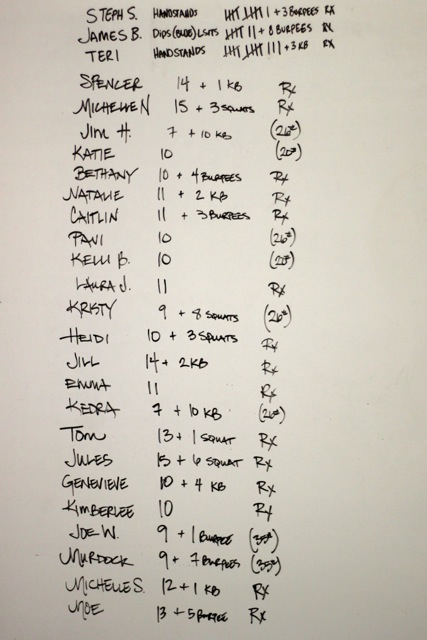 STEPH S. HANDSTANDS 𝍸 𝍸 I + 3 BURPEES RX
JAMES B. DIPS (BLUE) LSITS 𝍸 II + 8 BURPEES RX
TERI HANDSTANDS 𝍸 𝍸 III + 3 KB RX
SPENCER 14 + 1 KB RX
MICHELLE N 15 + 3 SQUATS RX
JIM H. 7 + 10 KB (26#)
KATIE 10 (20#)
BETHANY 10 + 4 BURPEES RX
NATALIE 11 + 2 KB RX
CAITLIN 11 + 3 BURPEES RX
PAVI 10 (26#)
KELLI B. 10 (20#)
LAURA J. 11 RX
KRISTY 9 + 8 SQUATS (26#)
HEIDI 10 + 3 SQUATS RX
JILL 14 + 2 KB RX
EMMA 11 RX
KEDRA 7 + 10 KB (26#)
TOM 13 + 1 SQUAT RX
JULES 15 + 6 SQUAT RX
GENEVIEVE 10 + 4 KB RX
KIMBERLEE 10 RX
JOE W. 9 + 1 BURPEE (35#)
MURDOCK 9 + 7 BURPEES (35#)
MICHELLE S. 12 + 1 KB RX
MOE 13 + 5 BURPEE RX